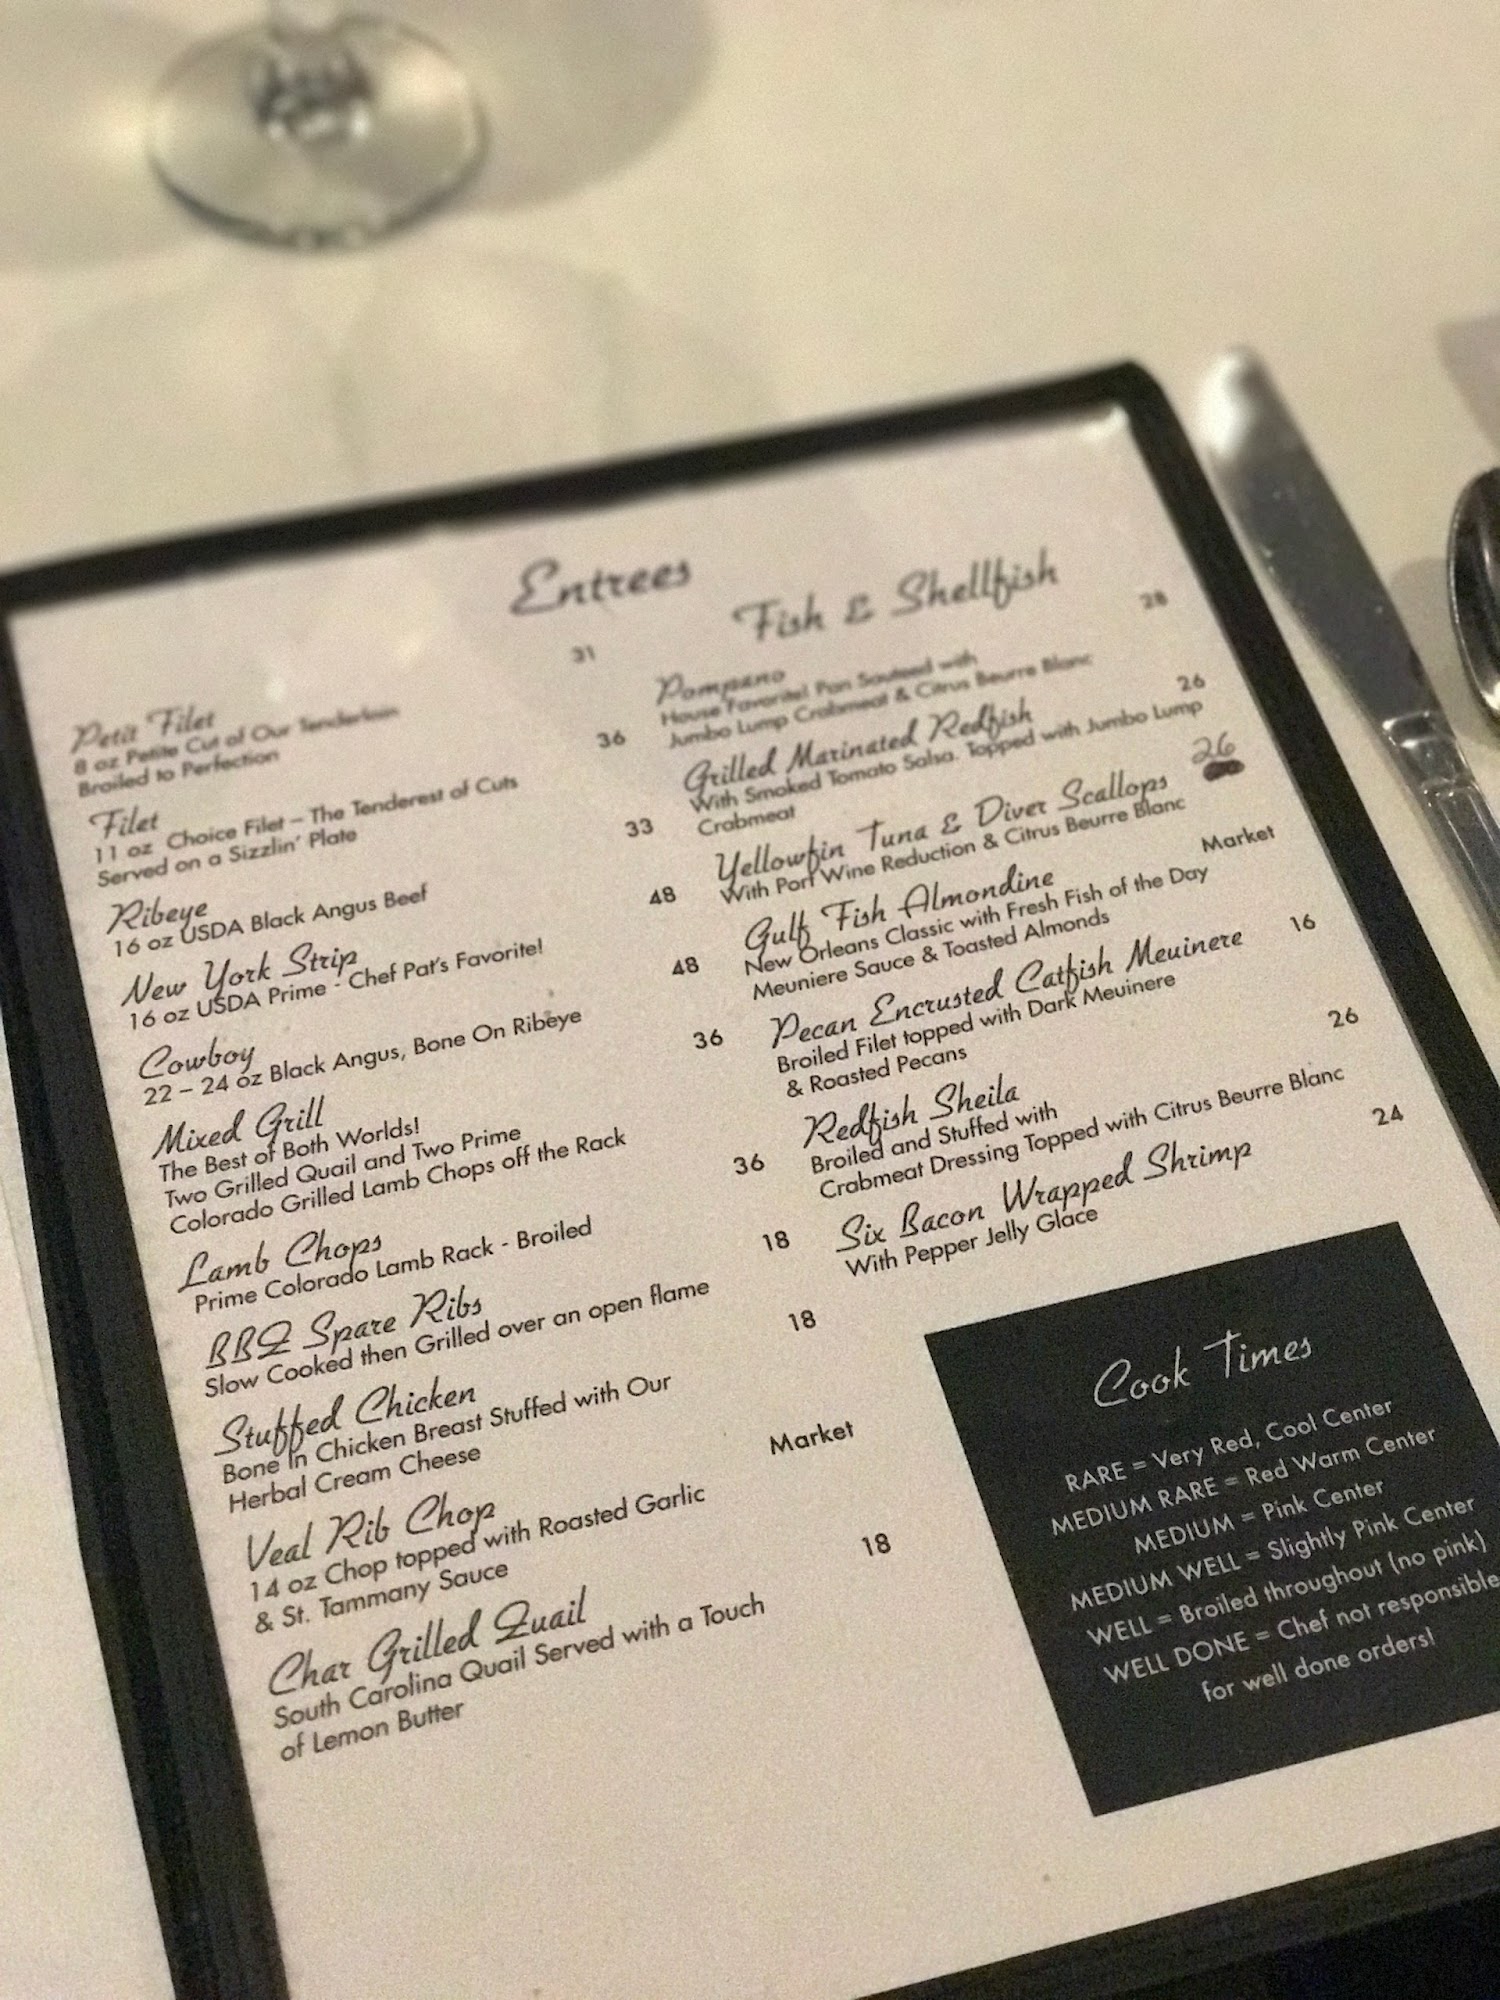 Entrees
Petit Filet 31
8 oz Petite Cut of Our Tenderloin
Broiled to Perfection
Filet 36
11 oz Choice Filet – The Tenderest of Cuts
Served on a Sizzlin' Plate
Ribeye 33
16 oz USDA Black Angus Beef
New York Strip 48
16 oz USDA Prime - Chef Pat's Favorite!
Cowboy 48
22 – 24 oz Black Angus, Bone On Ribeye
Mixed Grill 36
The Best of Both Worlds!
Two Grilled Quail and Two Prime
Colorado Grilled Lamb Chops off the Rack
Lamb Chops 36
Prime Colorado Lamb Rack - Broiled
BBQ Spare Ribs 18
Slow Cooked then Grilled over an open flame
Stuffed Chicken 18
Bone In Chicken Breast Stuffed with Our
Herbal Cream Cheese
Veal Rib Chop Market
14 oz Chop topped with Roasted Garlic
& St. Tammany Sauce
Char Grilled Quail 18
South Carolina Quail Served with a Touch
of Lemon Butter
Fish & Shellfish
Pompano 28
House Favorite! Pan Sauteed with
Jumbo Lump Crabmeat & Citrus Beurre Blanc
Grilled Marinated Redfish 26
With Smoked Tomato Salsa. Topped with Jumbo Lump
Crabmeat
Yellowfin Tuna & Diver Scallops 26
With Port Wine Reduction & Citrus Beurre Blanc
Gulf Fish Almondine Market
New Orleans Classic with Fresh Fish of the Day
Meuniere Sauce & Toasted Almonds
Pecan Encrusted Catfish Meuinere 16
Broiled Filet topped with Dark Meuinere
& Roasted Pecans
Redfish Sheila 26
Broiled and Stuffed with
Crabmeat Dressing Topped with Citrus Beurre Blanc
Six Bacon Wrapped Shrimp 24
With Pepper Jelly Glace
Cook Times
RARE = Very Red, Cool Center
MEDIUM RARE = Red Warm Center
MEDIUM = Pink Center
MEDIUM WELL = Slightly Pink Center
WELL = Broiled throughout (no pink)
WELL DONE = Chef not responsible
for well done orders!